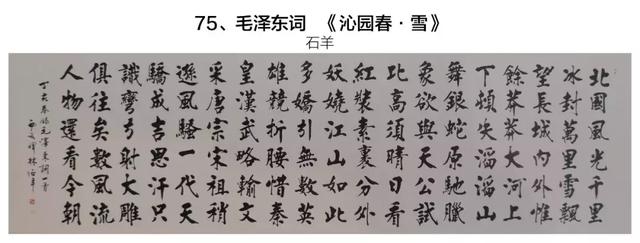 75、毛泽东词 《沁园春·雪》
石羊
北國風光千里
冰封萬里雪飄
望長城內外惟
餘莽莽大河上
下頓失滔滔山
舞銀蛇原馳臘
象欲與天公試
比高須晴日看
紅裝素裹分外
妖嬈江山如此
多嬌引無數英
雄競折腰惜秦
皇漢武略輸文
采唐宗宋祖稍
遜風騷一代天
驕成吉思汗只
識彎弓射大雕
俱往矣數風流
人物還看今朝
丁亥春錄毛澤東詞一首